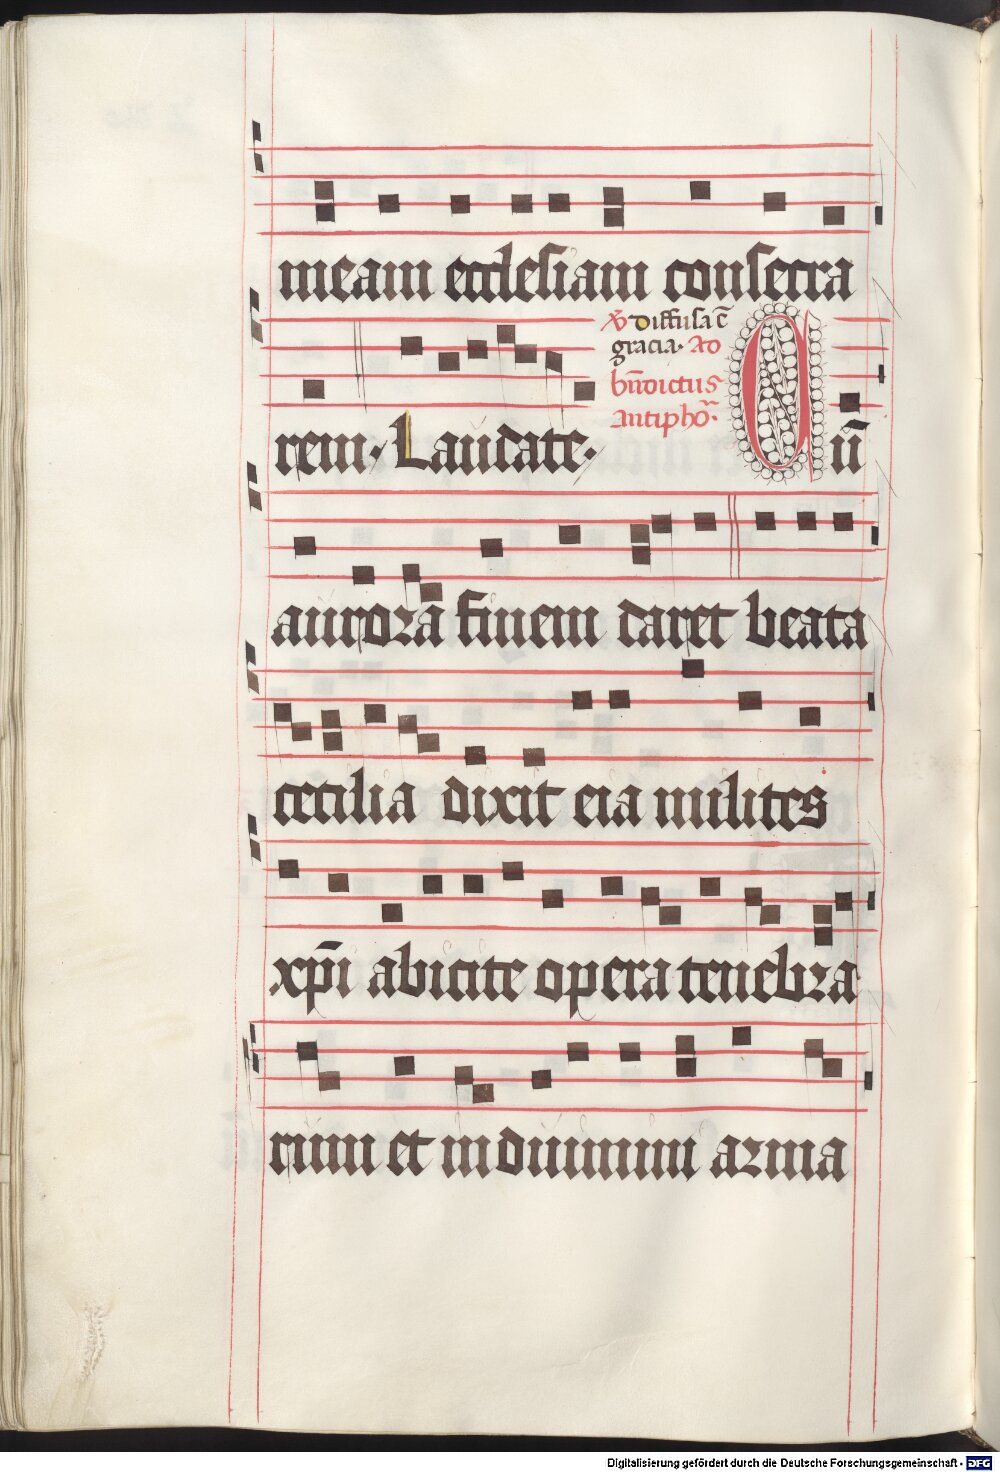 meam ecclesiam consecra
rem. Laudate. ℣ diffusa ē
gracia. Ad
bn̄dictus
Antipho͞. Cū
aurora finem daret beata
cecilia dixit eia milites
xp̄i abicite opera tenebra
rum et induimini arma
Digitalisierung gefördert durch die Deutsche Forschungsgemeinschaft - DFG